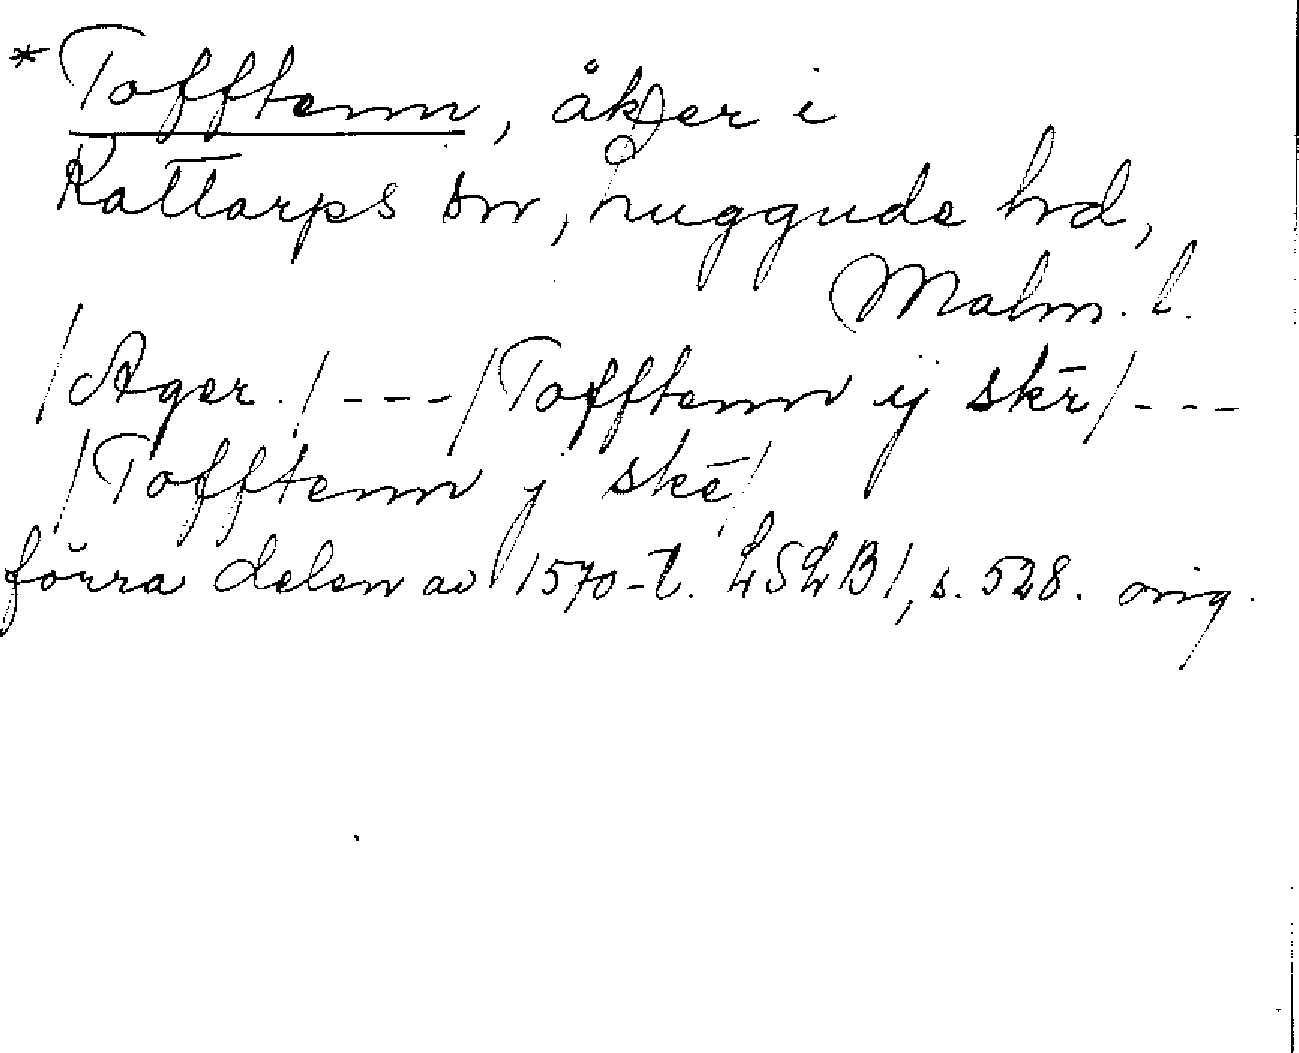 *Tofftenn, åker i
Kattarps sn, Luggude hd,
Malm. l.
/Ager./---/Tofftenn ij skē/---
/Tofftenn j skē/
förra delen av 1570-t. LSLB1, s. 528. orig.